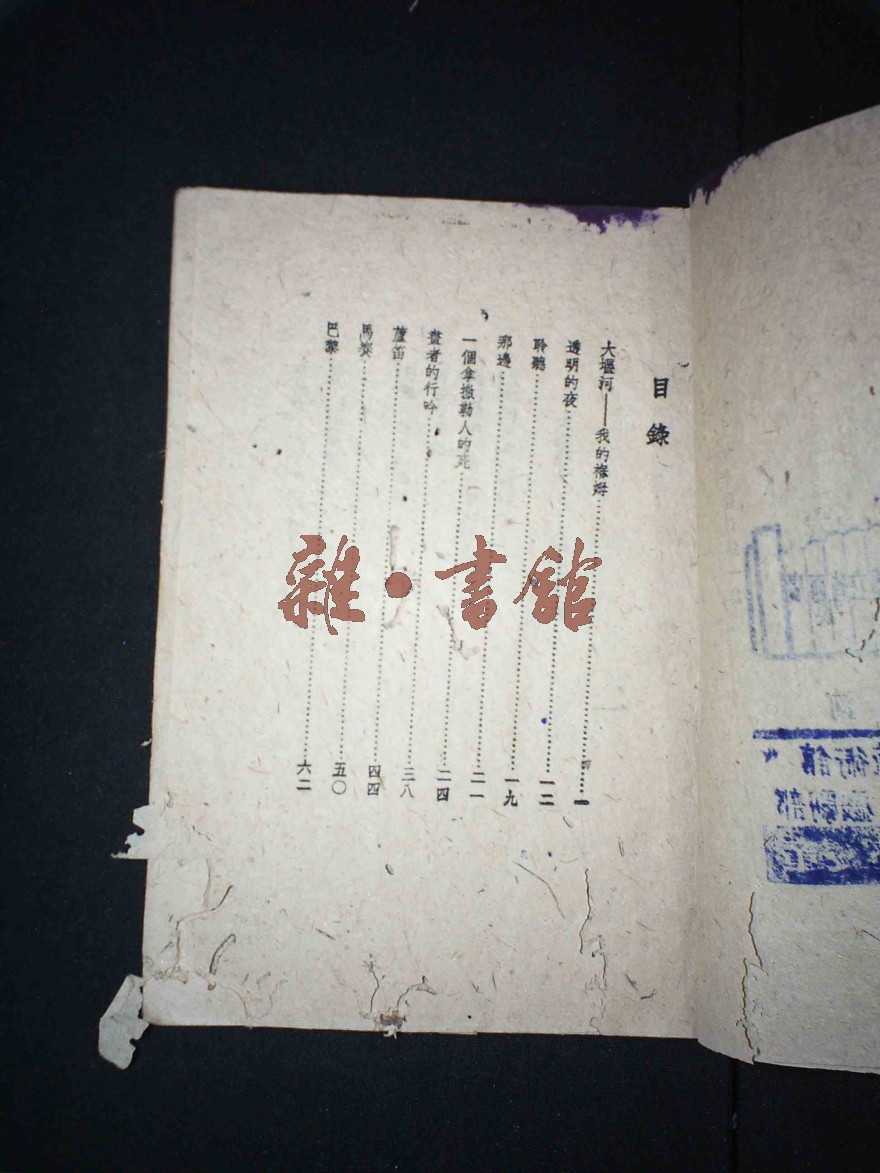 目錄
大堰河——我的褓姆……一
透明的夜……一二
聆聽……一九
那邊……二一
一個拿撒勒人的死……二四
畫者的行吟……三八
蘆笛……四四
馬賽……五〇
巴黎……六二
雜·書館